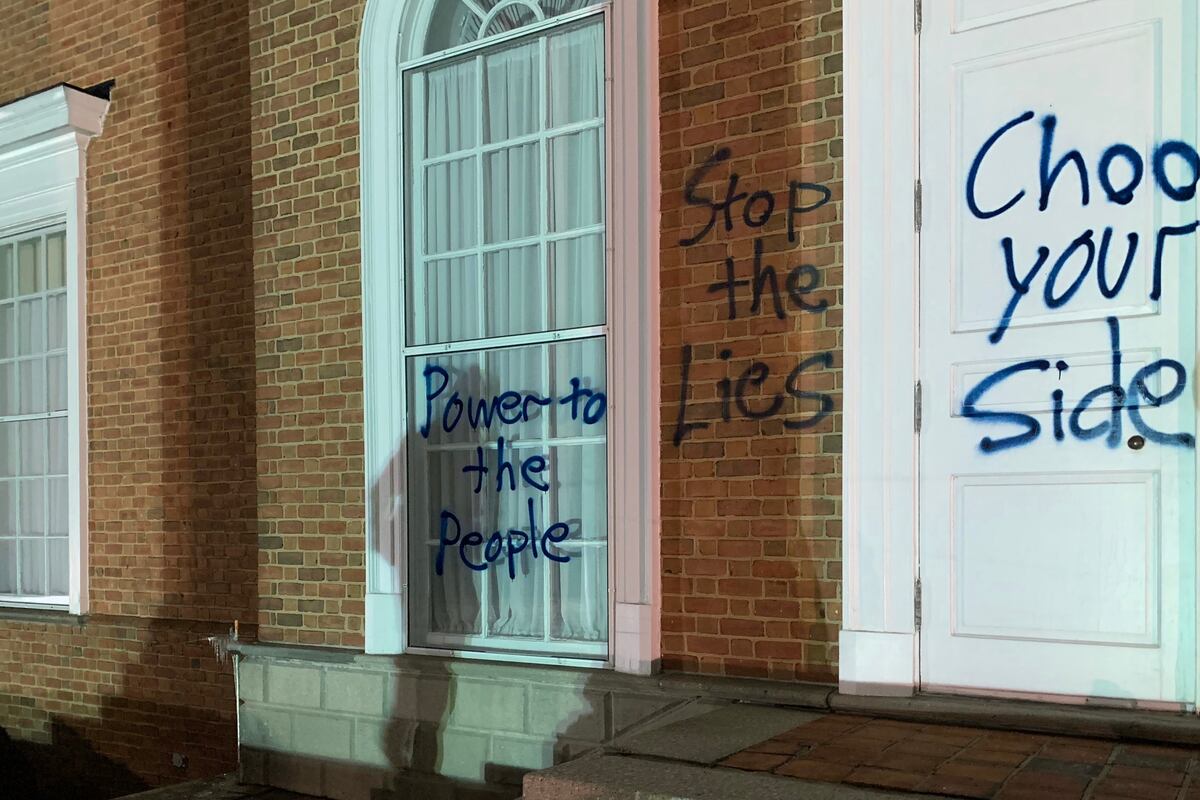 Power to
the
People
Stop
the
Lies
Choo
your
Side